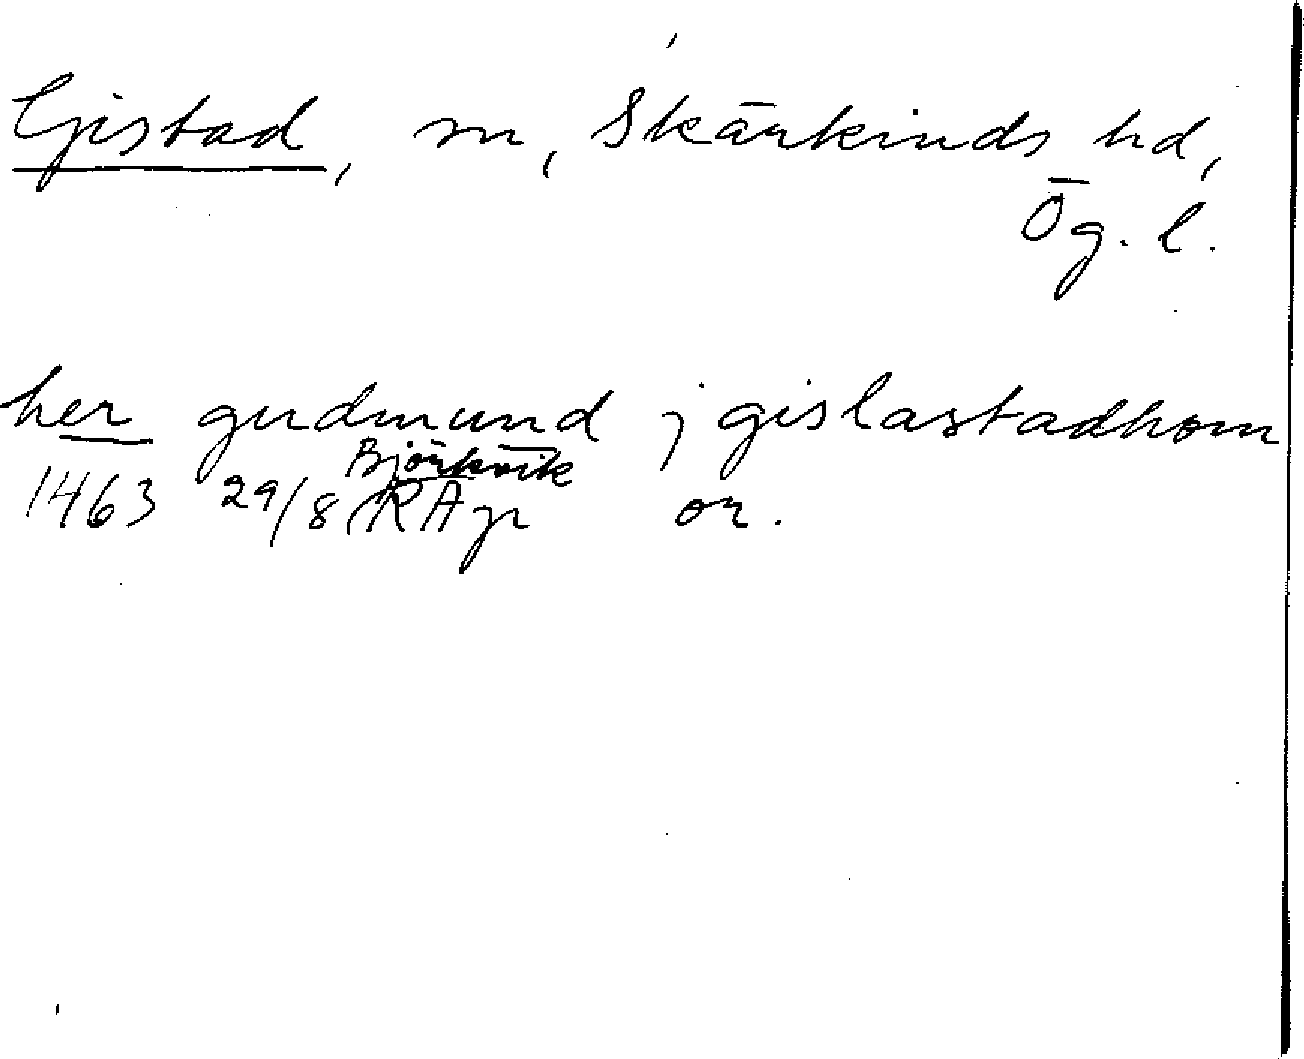 Gistad, sn, Skärkinds hd,
Ög. l.
her gudmund j gislastadhom
Björkvik
1463 29/8 RAp or.